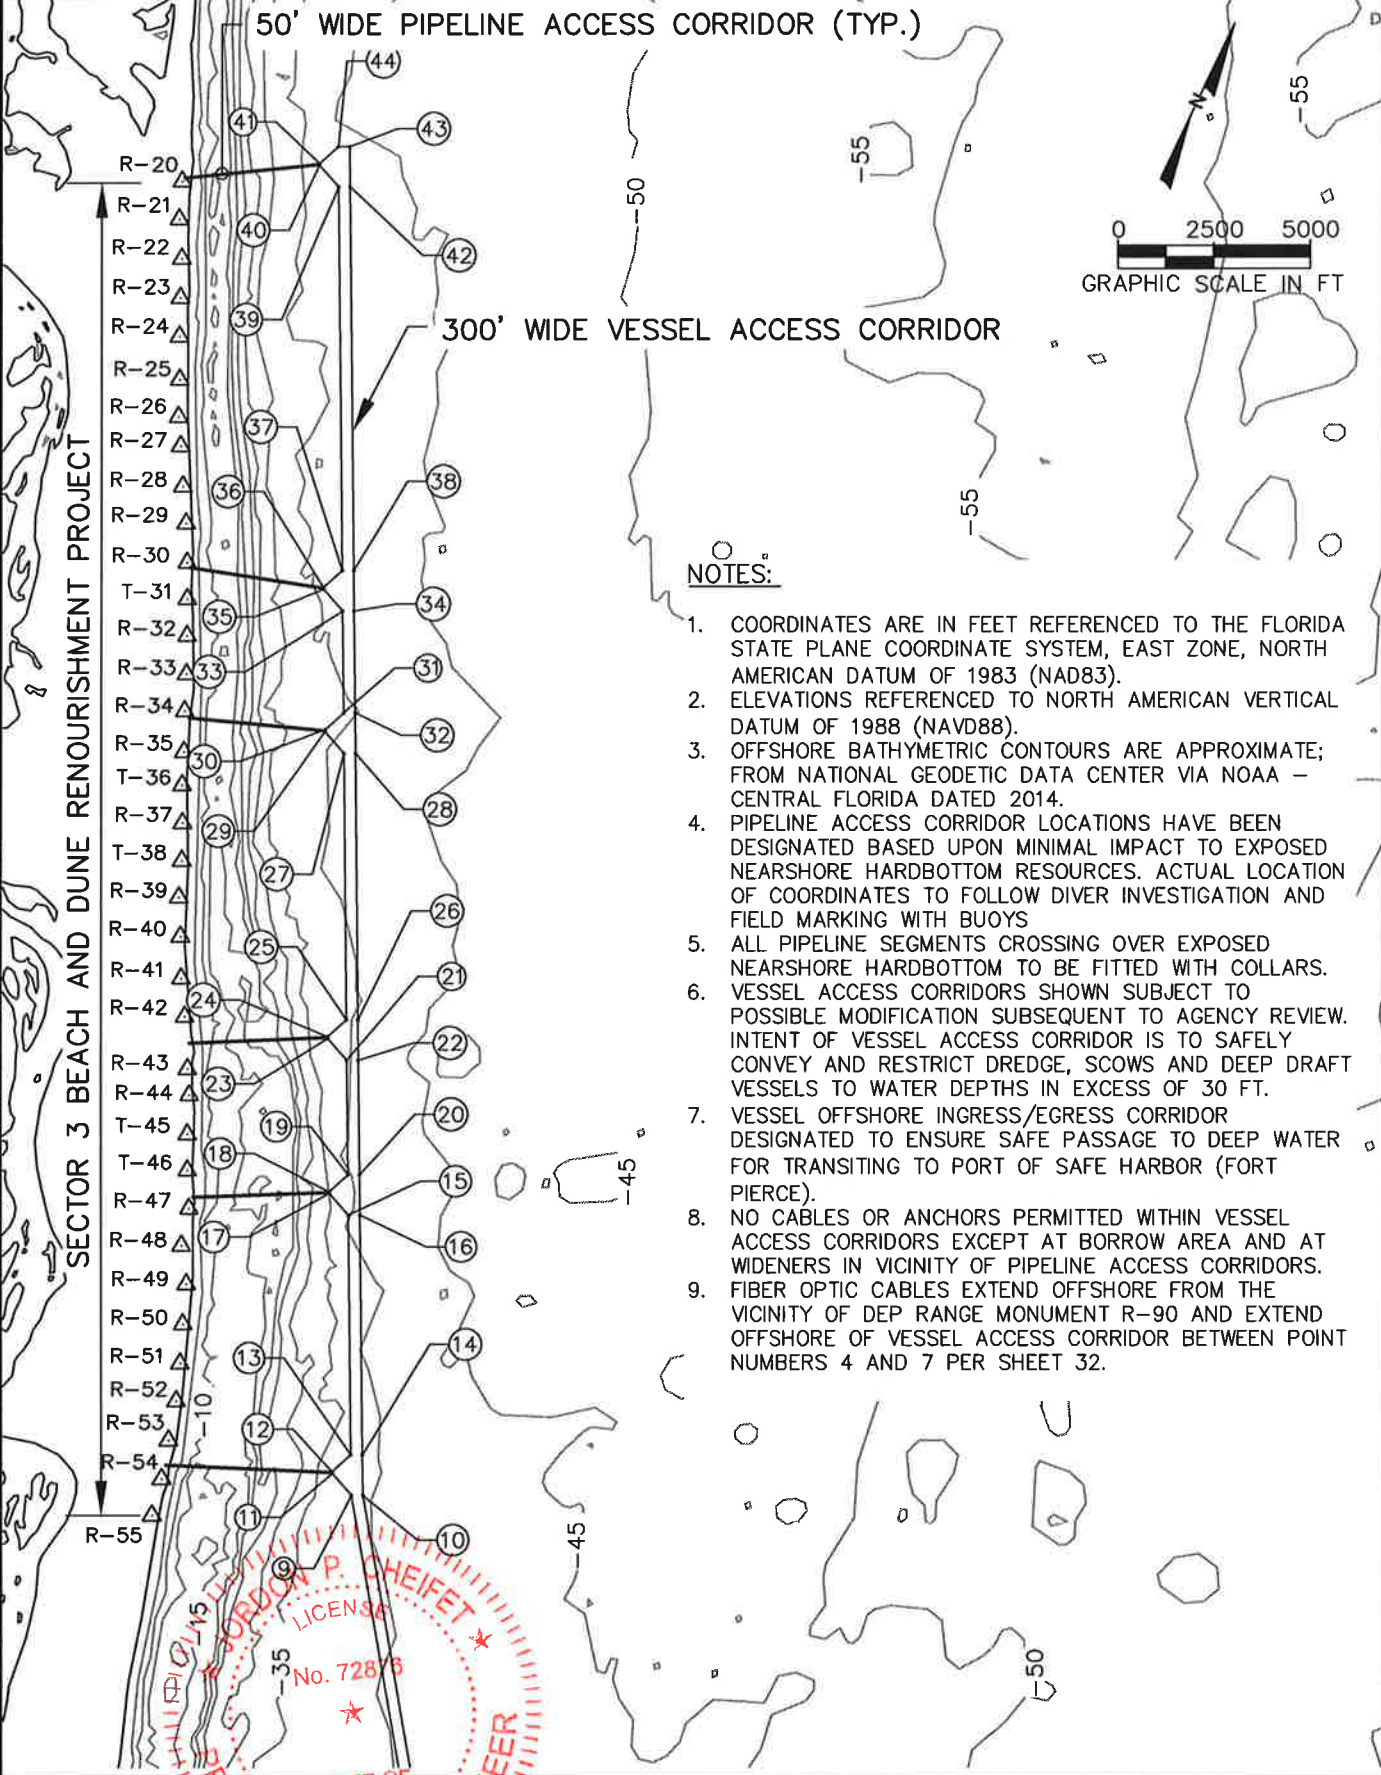 50' WIDE PIPELINE ACCESS CORRIDOR (TYP.)
44
41
43
R-20
R-21
40
R-22
42
R-23
39
R-24
300' WIDE VESSEL ACCESS CORRIDOR
R-25
R-26
37
R-27
R-28
38
36
R-29
R-30
T-31
34
35
R-32
R-33
33
31
R-34
32
R-35
30
T-36
28
R-37
29
T-38
27
R-39
26
R-40
25
R-41
21
24
R-42
22
R-43
23
R-44
20
T-45
19
T-46
18
15
R-47
17
16
R-48
R-49
R-50
14
R-51
13
R-52
R-53
12
R-54
11
R-55
10
9
SECTOR 3 BEACH AND DUNE RENOURISHMENT PROJECT
-10
-15
-35
-50
-55
-55
-55
-45
-45
-50
N
0 2500 5000
GRAPHIC SCALE IN FT
NOTES:
1. COORDINATES ARE IN FEET REFERENCED TO THE FLORIDA
STATE PLANE COORDINATE SYSTEM, EAST ZONE, NORTH
AMERICAN DATUM OF 1983 (NAD83).
2. ELEVATIONS REFERENCED TO NORTH AMERICAN VERTICAL
DATUM OF 1988 (NAVD88).
3. OFFSHORE BATHYMETRIC CONTOURS ARE APPROXIMATE;
FROM NATIONAL GEODETIC DATA CENTER VIA NOAA –
CENTRAL FLORIDA DATED 2014.
4. PIPELINE ACCESS CORRIDOR LOCATIONS HAVE BEEN
DESIGNATED BASED UPON MINIMAL IMPACT TO EXPOSED
NEARSHORE HARDBOTTOM RESOURCES. ACTUAL LOCATION
OF COORDINATES TO FOLLOW DIVER INVESTIGATION AND
FIELD MARKING WITH BUOYS
5. ALL PIPELINE SEGMENTS CROSSING OVER EXPOSED
NEARSHORE HARDBOTTOM TO BE FITTED WITH COLLARS.
6. VESSEL ACCESS CORRIDORS SHOWN SUBJECT TO
POSSIBLE MODIFICATION SUBSEQUENT TO AGENCY REVIEW.
INTENT OF VESSEL ACCESS CORRIDOR IS TO SAFELY
CONVEY AND RESTRICT DREDGE, SCOWS AND DEEP DRAFT
VESSELS TO WATER DEPTHS IN EXCESS OF 30 FT.
7. VESSEL OFFSHORE INGRESS/EGRESS CORRIDOR
DESIGNATED TO ENSURE SAFE PASSAGE TO DEEP WATER
FOR TRANSITING TO PORT OF SAFE HARBOR (FORT
PIERCE).
8. NO CABLES OR ANCHORS PERMITTED WITHIN VESSEL
ACCESS CORRIDORS EXCEPT AT BORROW AREA AND AT
WIDENERS IN VICINITY OF PIPELINE ACCESS CORRIDORS.
9. FIBER OPTIC CABLES EXTEND OFFSHORE FROM THE
VICINITY OF DEP RANGE MONUMENT R-90 AND EXTEND
OFFSHORE OF VESSEL ACCESS CORRIDOR BETWEEN POINT
NUMBERS 4 AND 7 PER SHEET 32.
JORDON P. CHEIFET
LICENSE
No. 72876